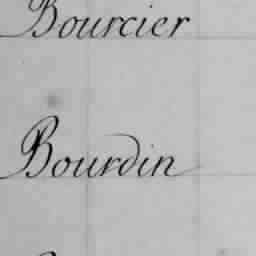 Bourcier
Bourdin